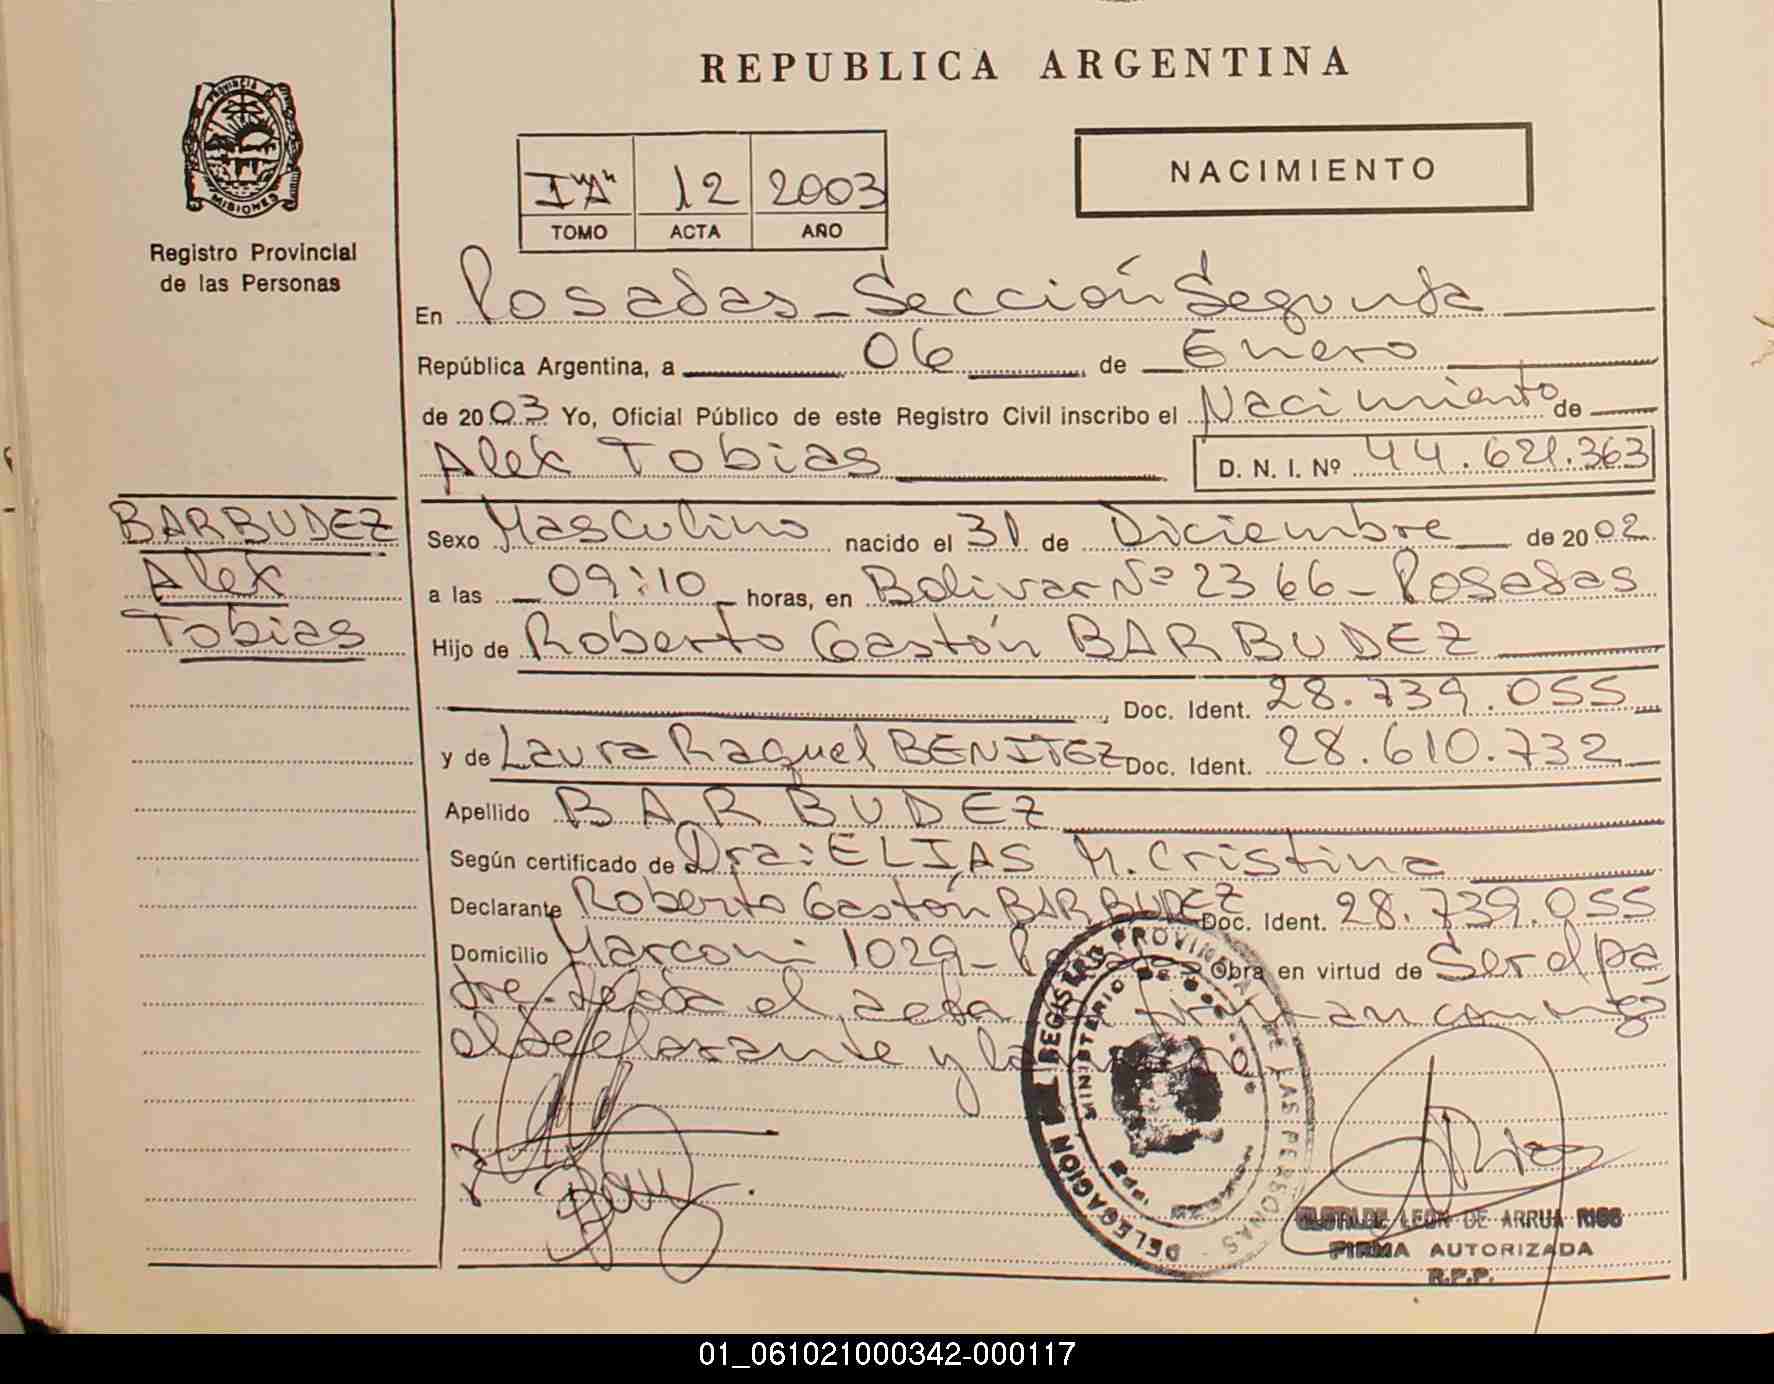 REPUBLICA ARGENTINA
PROVINCIA DE
MISIONES
Registro Provincial
de las Personas
I "A" 12 2003
TOMO ACTA AÑO
NACIMIENTO
En Posadas - Sección Segunda
República Argentina, a 06 de Enero
de 2003 Yo, Oficial Público de este Registro Civil inscribo el Nacimiento de
Alex Tobias D. N. I. Nº 44.621.363
BARBUDEZ
Alex
Tobias
Sexo Masculino nacido el 31 de Diciembre de 2002
a las 09:10 horas, en Bolivar Nº 2366 - Posadas
Hijo de Roberto Gastón BARBUDEZ
Doc. Ident. 28.739.055
y de Laura Raquel BENITEZ Doc. Ident. 28.610.732
Apellido BARBUDEZ
Según certificado de Dra: ELIAS M. Cristina
Declarante Roberto Gastón BARBUDEZ Doc. Ident. 28.739.055
Domicilio Marconi 1029 - Obra en virtud de Ser el pa
dre - Leída el acta firman conmigo
el declarante y la
DELEGACION REGISTRO PROVINCIAL DE LAS PERSONAS
MINISTERIO DE
LEON DE ARRUA RIOS
FIRMA AUTORIZADA
R.P.P.
01_061021000342-000117